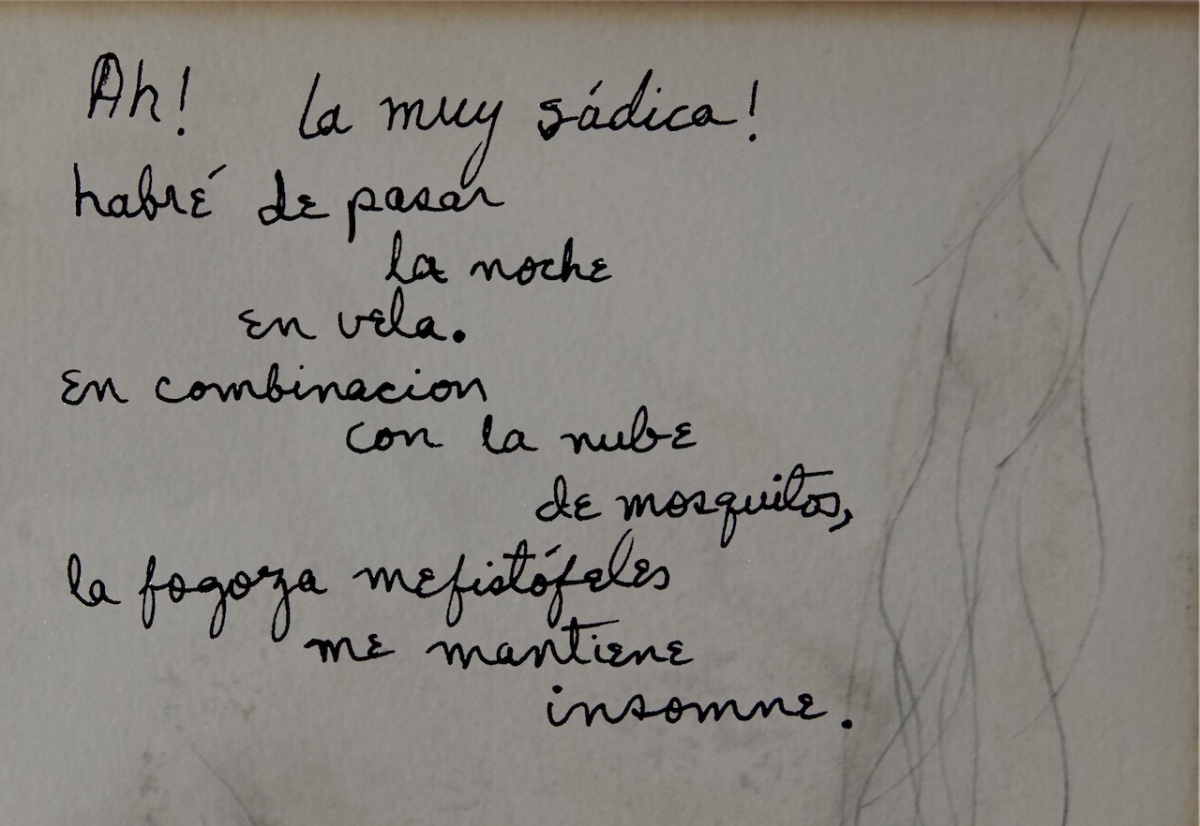 Ah! la muy sádica!
habré de pasar
la noche
en vela.
en combinacion
con la nube
de mosquitos,
la fogoza mefistófeles
me mantiene
insomne.